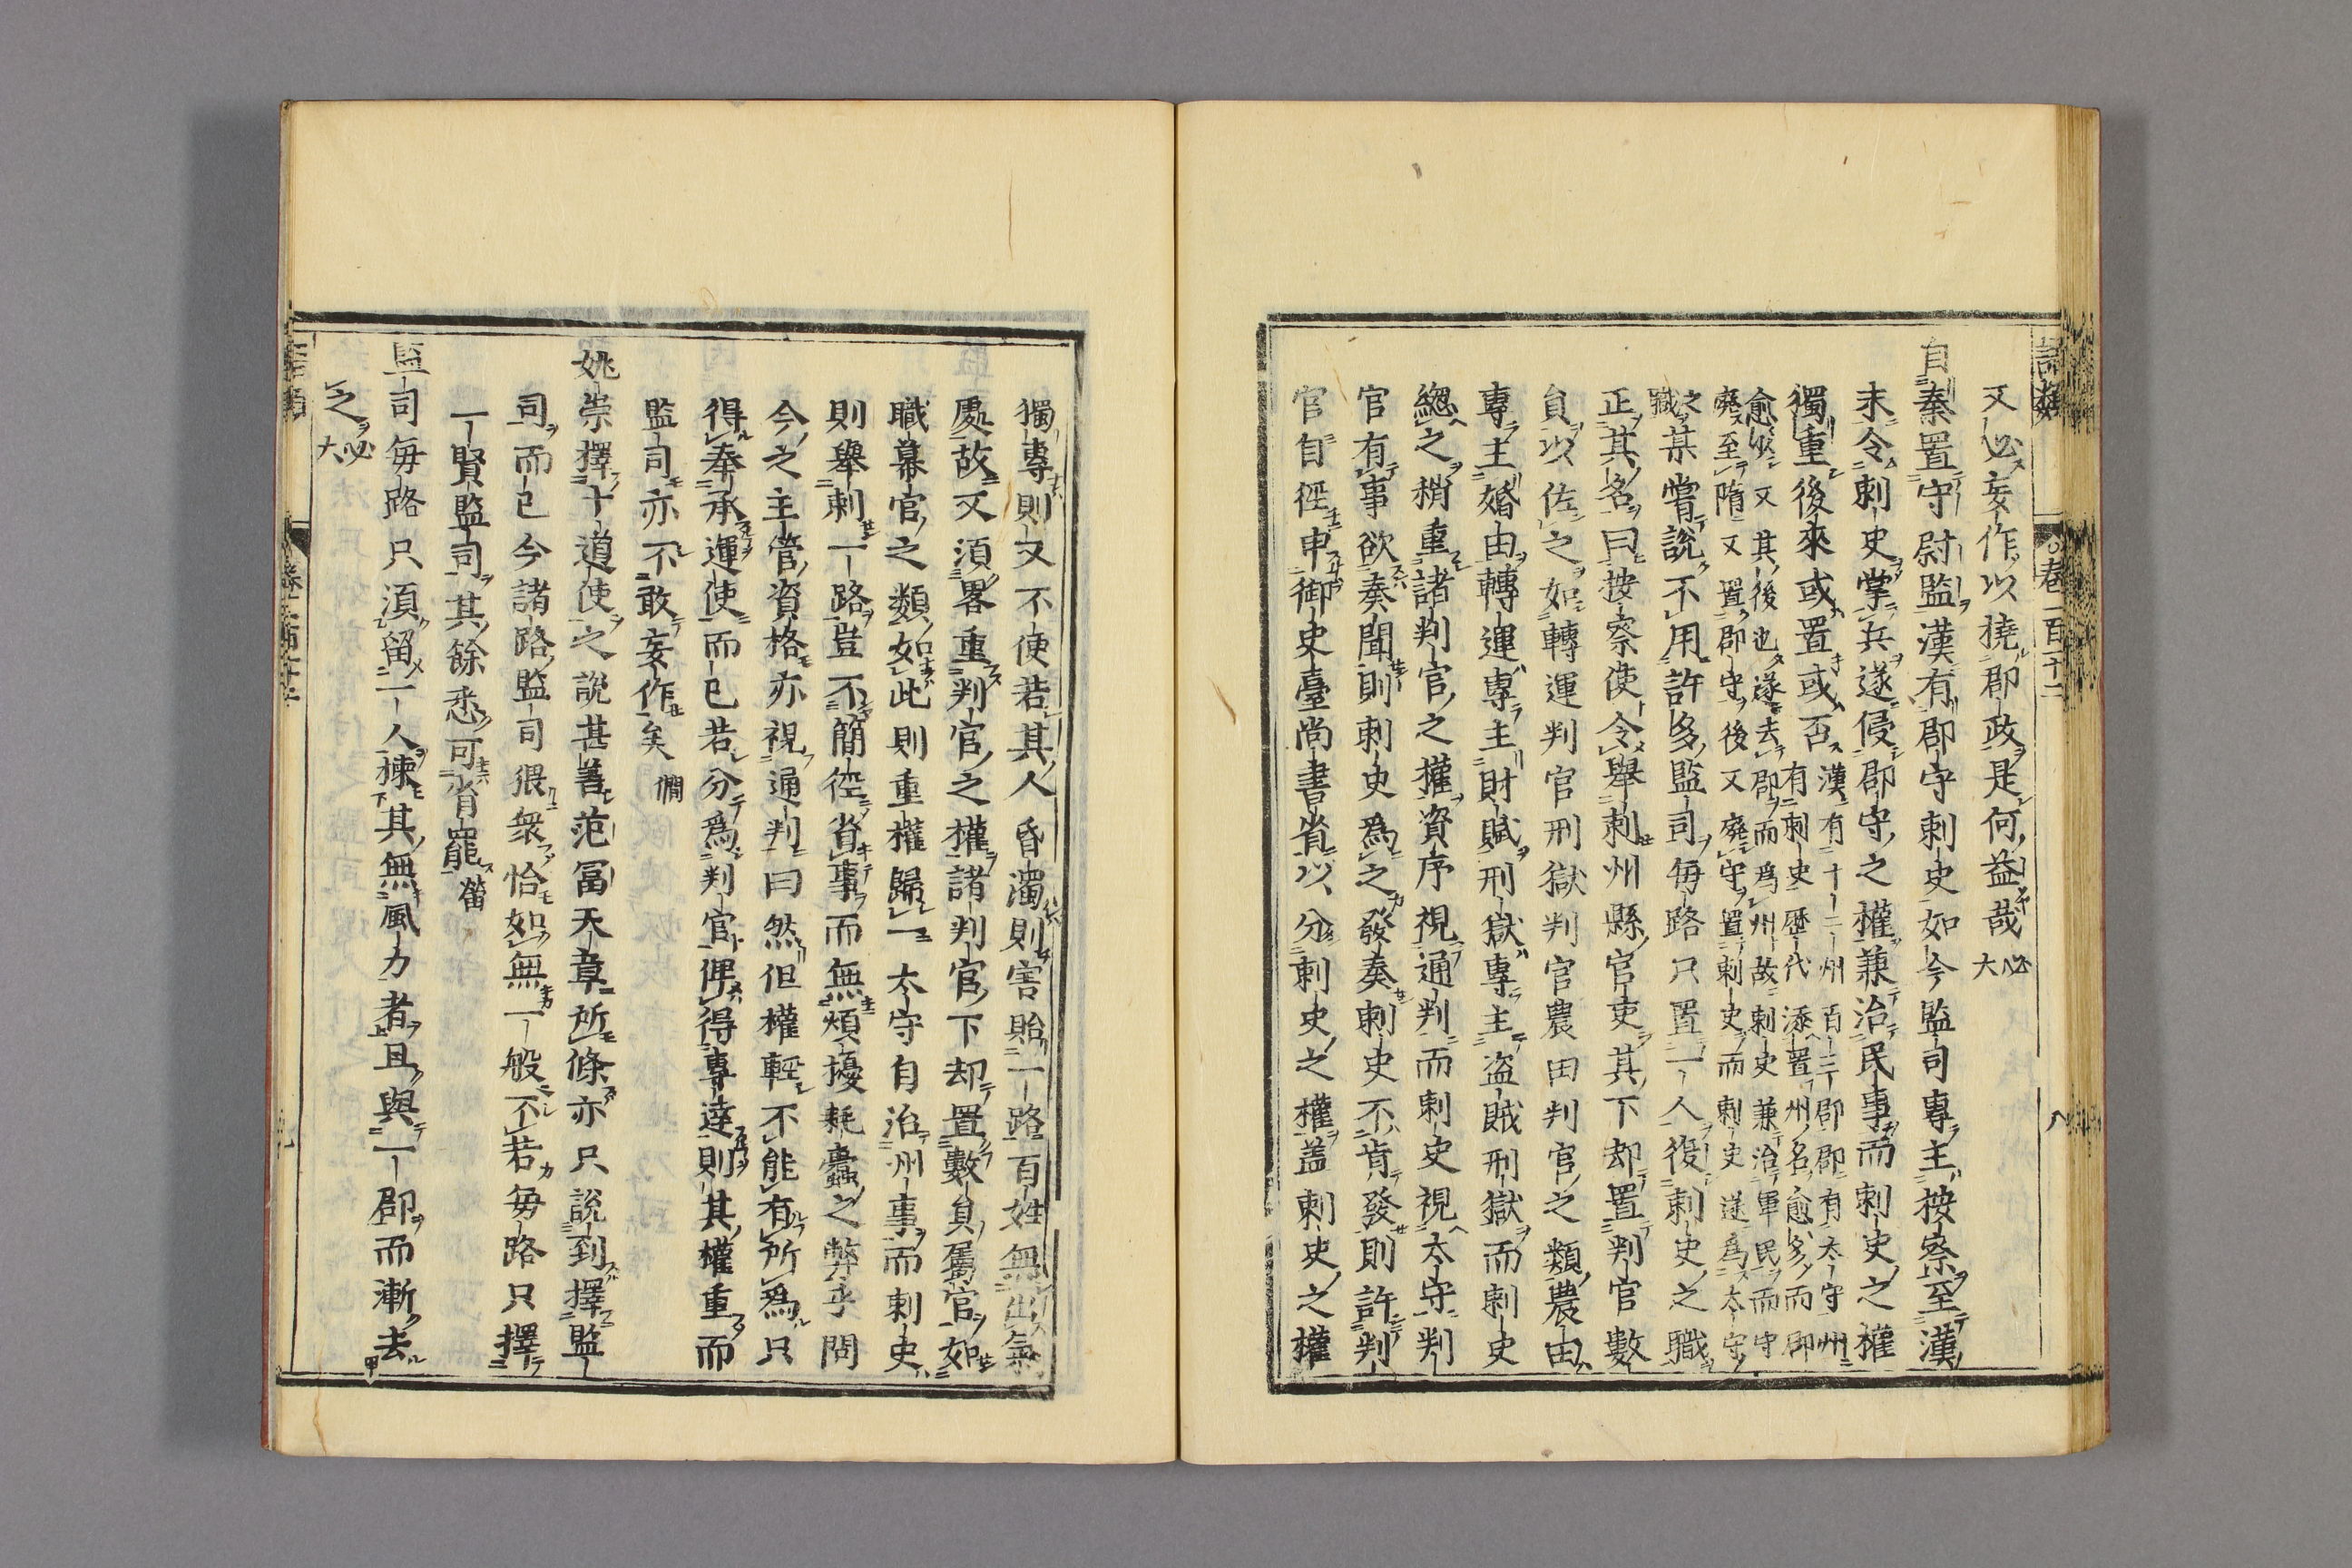 語類 卷一百十二 八
又必妄作以撓郡政是何益哉 必大
自秦置守尉監漢有郡守刺史如今監司專主按察至漢
末令刺史掌兵遂侵郡守之權兼治民事而刺史之權
獨重後來或置或否 漢有十二州百三郡郡有太守州
有刺史歷代添置州名愈多而郡
愈少又其後也遂去郡而為州故刺史兼治軍民而守
廢至隋又置郡守後又廢守置刺史而刺史遂為太守
之職 某嘗說不用許多監司每路只置一人復刺史之職
正其名曰按察使令舉刺州縣官吏其下却置判官數
員以佐之如轉運判官刑獄判官農田判官之類農田
專主婚田轉運專主財賦刑獄專主盜賊刑獄而刺史
總之稍重諸判官之權資序視通判而刺史視太守判
官有事欲奏聞則刺史為之發奏刺史不肯發則許判
官自徑申御史臺尚書省以分刺史之權蓋刺史之權
獨專則又不便若其人昏濁則害貽一路百姓無出氣
處故又須畧重判官之權諸判官下却置數員屬官如
職幕官之類如此則重權歸一太守自治州事而刺史
則舉刺一路豈不簡徑省事而無煩擾耗蠹之弊乎問
今之主管資格亦視通判曰然但權輕不能有所為只
得奉承運使而已若分為判官俾得專達則其權重而
監司亦不敢妄作矣 僩
姚崇擇十道使之說甚善范富天章所條亦只說到擇監
司而已今諸路監司猥衆恰如無一般不若每路只擇
一賢監司其餘悉可省罷 㽦
監司每路只須留一人揀其無風力者且與一郡而漸去
之 必大